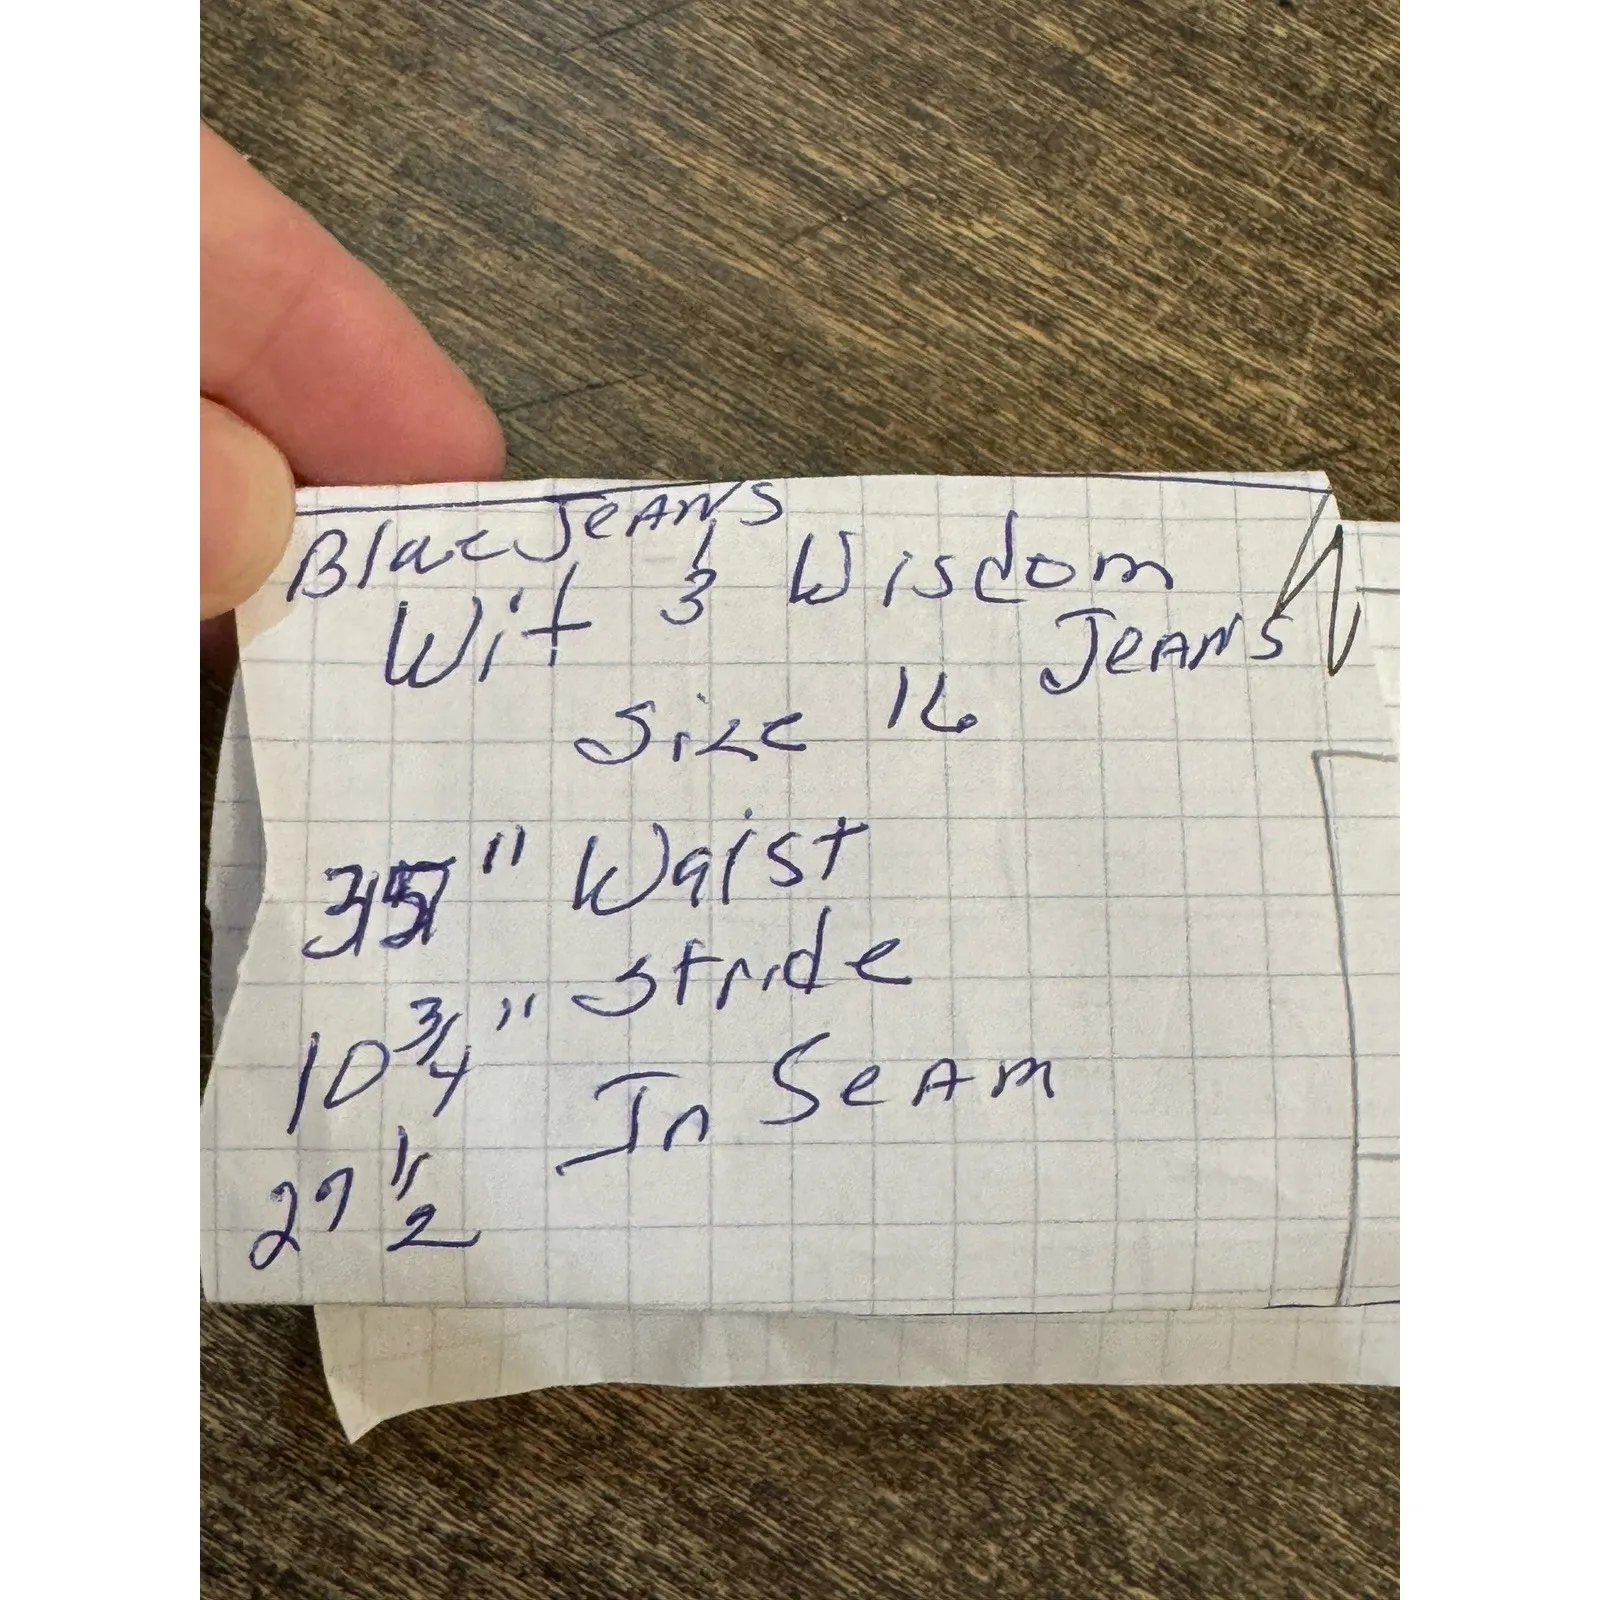 Blue Jeans
Wit & Wisdom
Jeans
Size 16
35" Waist
10 3/4" Stride
27 1/2 In Seam